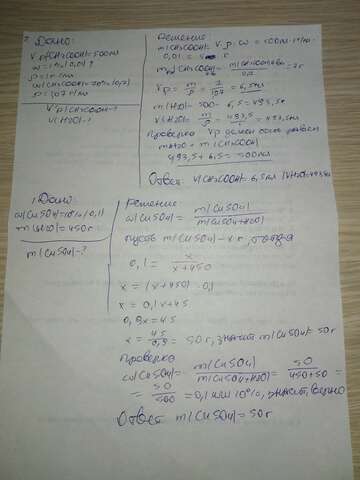 Дано:
V р(CH3COOH)=500мл
w=1% (0,01)
ρ=1г/мл
w(CH3COOH)=70% (0,7)
ρ=1,07 г/мл
V р(CH3COOH)-?
V(H2O)-?
Решение
m(CH3COOH)=V·ρ·w=500мл·1г/мл·
0,01=5 г
V р=m/ρ=7/1,07=6,5мл
m(H2O)=500-6,5=493,5г
V(H2O)=m/ρ=493,5/1=493,5мл
Проверка Vр
mH2O+m(CH3COOH)
493,5+6,5=500мл
Ответ: V(CH3COOH)=6,5мл, V(H2O)=493,5мл
1. Дано
w(CuSO4)=10% (0,1)
m(H2O)=450г
m(CuSO4)-?
Решение
w(CuSO4)=m(CuSO4)/m(CuSO4+H2O)
пусть m(CuSO4)-x г, тогда
0,1=x/x+450
x=(x+450)·0,1
x=0,1x+45
0,9x=45
x=45/0,9=50г, значит m(CuSO4)=50г
Проверка
w(CuSO4)=m(CuSO4)/m(CuSO4+H2O)=50/450+50=
=50/500=0,1 или 10%, значит, верно
Ответ m(CuSO4)=50г